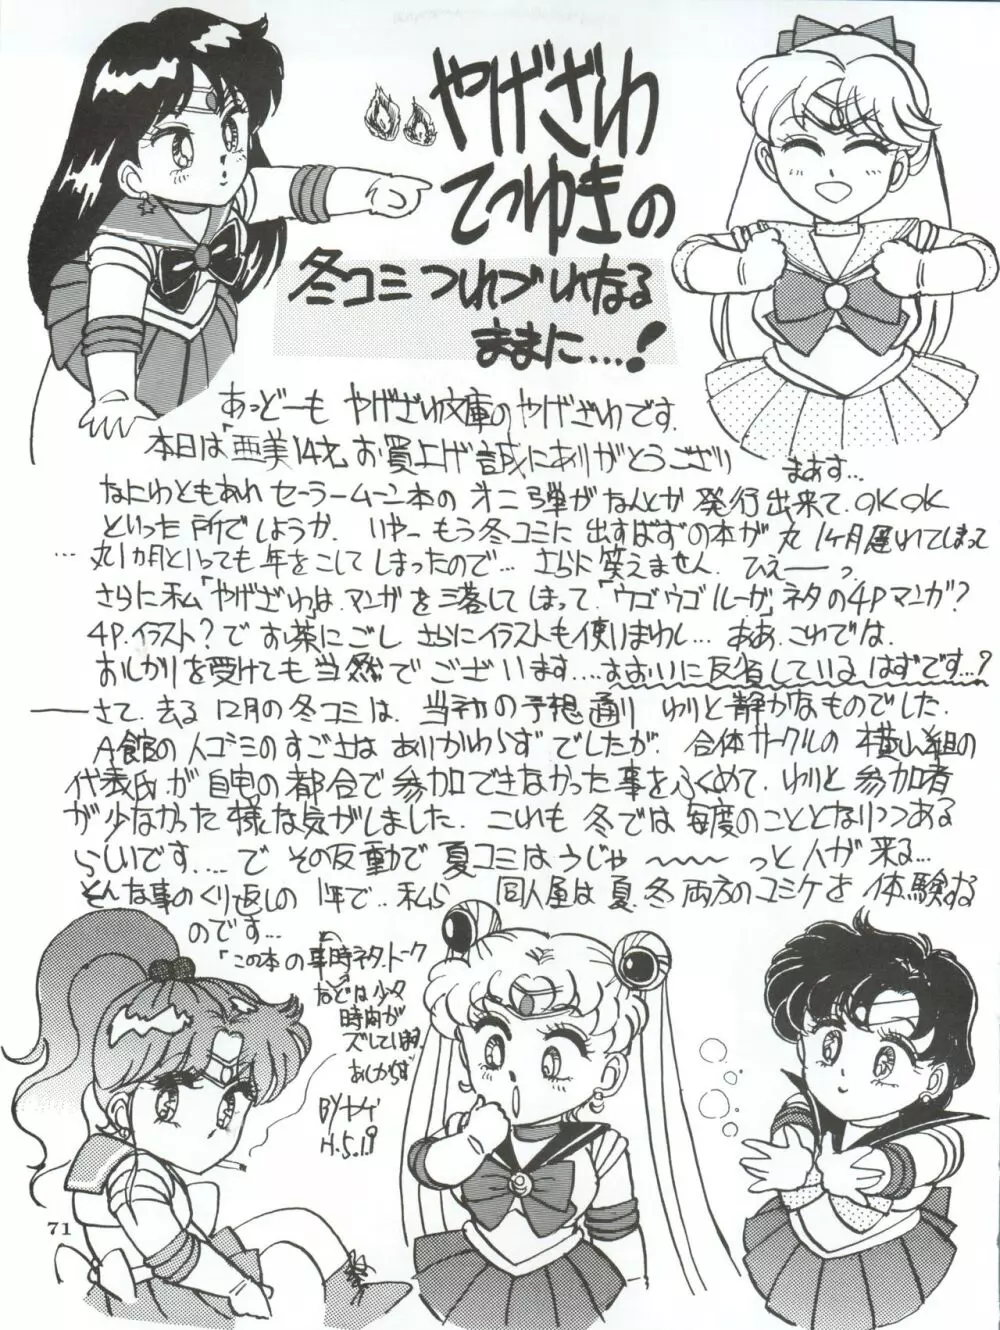 やげざわ
てつゆきの
冬コミつれづれなる
ままに…!
あっどーも やげざわ文庫のやげざわです.
本日は「亜美14才」お買上げ誠にありがとうござい
まあす…
なにわともあれ セーラームーン本のオニ弾がなんとか発行出来て.OKOK
といった所でしょうか. いやーもう冬コミに出すはずの本が丸1ヶ月遅れてしまって
…丸1か月といっても年をこしてしまったので… さらに笑えません. ひえーーっ.
さらに私「やげざわ」は.マンガを落してしまって.「ウゴウゴルーガ」ネタの4Pマンガ?
4P.イラスト?でお茶にごし さらにイラストも使いまわし… ああ.これでは.
おしかりを受けても当然でございます.…おおいに反省しているはずです…?
――さて.去る12月の冬コミは.当初の予想通り わりと静かなものでした.
A館の人ゴミのすごさはありかわらずでしたが. 合体サークルの横山組の
代表氏が自宅の都合で参加できなかった事をふくめて.わりと参加者
が少なかった様な気がしました.これも冬では毎度のこととなりつつある
らしいです.…で その反動で夏コミはうじゃ〜〜〜っと人が来る…
そんな事のくり返しの1年で..私ら 同人屋は夏.冬両方のコミケを体験する
のです…
「この本の事時ネタ.トーク
などは少々
時間が
ズレています.
あしからず
BYヤゲ
H.5.1.9
71